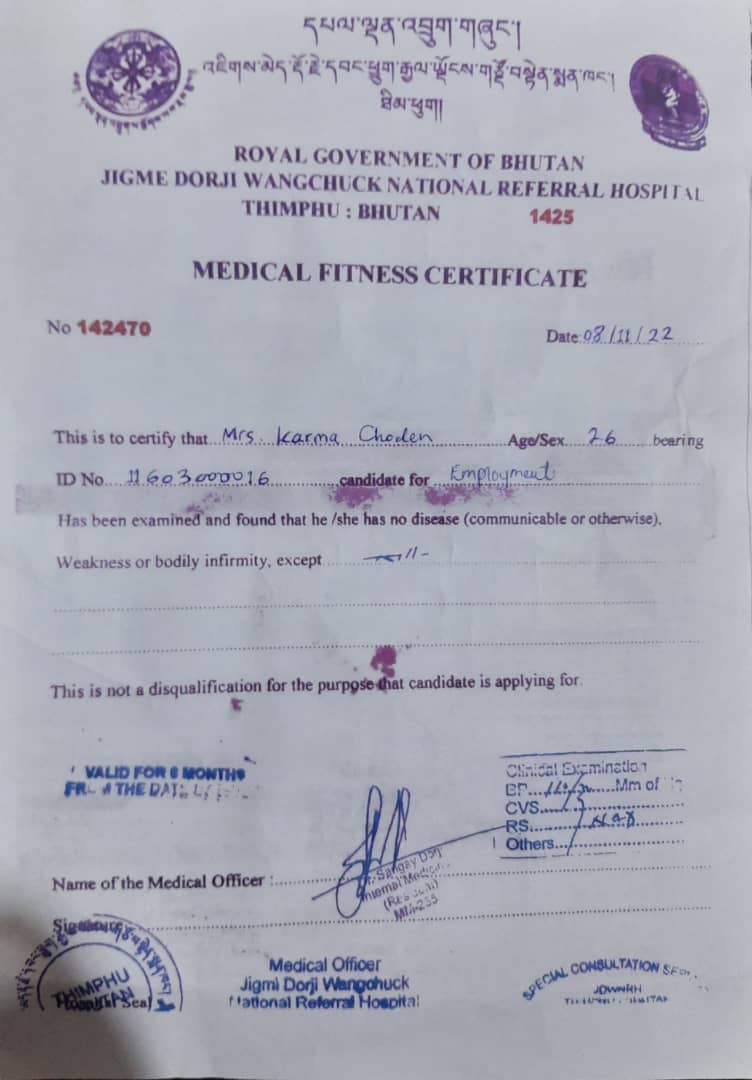 དཔལ་ལྡན་འབྲུག་གཞུང་།
འཇིགས་མེད་རྡོ་རྗེ་དབང་ཕྱུག་རྒྱལ་ཡོངས་གཙོ་བསྟེན་སྨན་ཁང་།
ཐིམ་ཕུག།
ROYAL GOVERNMENT OF BHUTAN
JIGME DORJI WANGCHUCK NATIONAL REFERRAL HOSPITAL
THIMPHU : BHUTAN 1425
MEDICAL FITNESS CERTIFICATE
No 142470 Date 08/11/22
This is to certify that Mrs. Karma Choden Age/Sex 26 bearing
ID No 11603000016 candidate for Employment
Has been examined and found that he /she has no disease (communicable or otherwise).
Weakness or bodily infirmity, except
This is not a disqualification for the purpose that candidate is applying for.
VALID FOR 6 MONTHS
THE DATE
Clinical Examination
BP Mm of
CVS
RS
Others
Name of the Medical Officer :
Sangay
Internal
Signature
THIMPHU
BHUTAN
Hospital Seal
Medical Officer
Jigmi Dorji Wangchuck
National Referral Hospital
SPECIAL CONSULTATION
JDWNRH